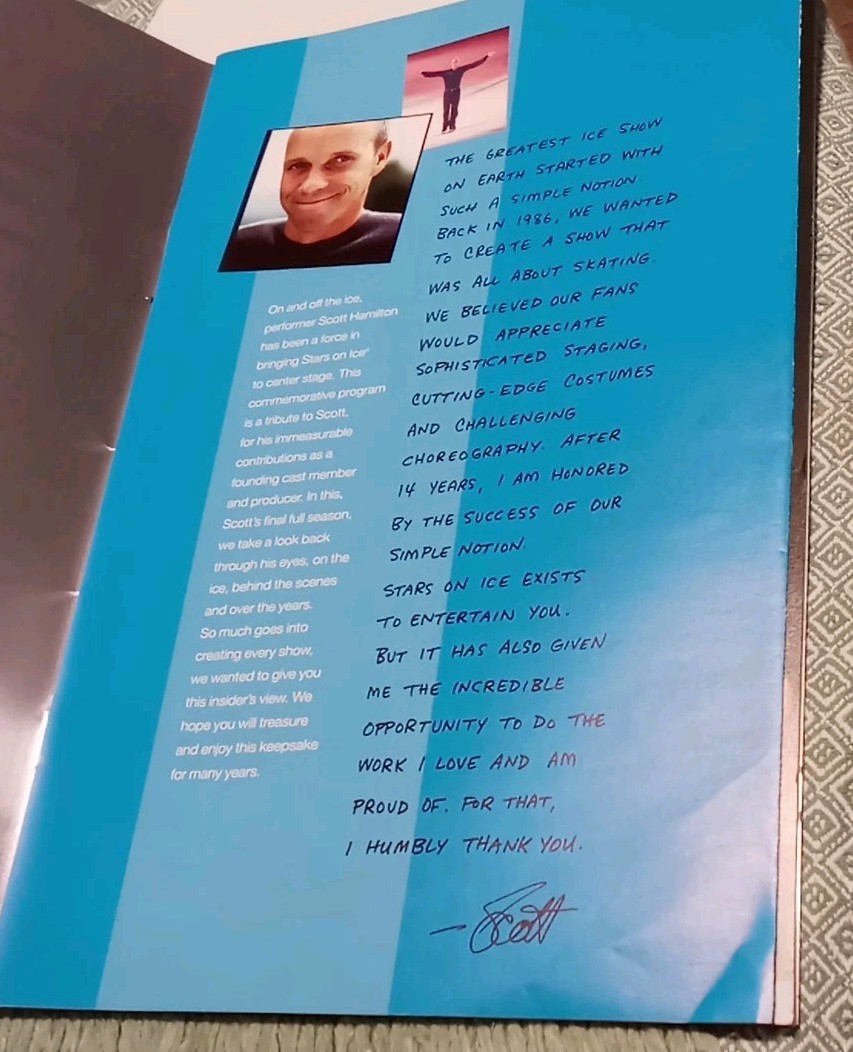 THE GREATEST ICE SHOW
ON EARTH STARTED WITH
SUCH A SIMPLE NOTION.
BACK IN 1986, WE WANTED
TO CREATE A SHOW THAT
WAS ALL ABOUT SKATING.
WE BELIEVED OUR FANS
WOULD APPRECIATE
SOPHISTICATED STAGING,
CUTTING-EDGE COSTUMES
AND CHALLENGING
CHOREOGRAPHY. AFTER
14 YEARS, I AM HONORED
BY THE SUCCESS OF OUR
SIMPLE NOTION.
STARS ON ICE EXISTS
TO ENTERTAIN YOU.
BUT IT HAS ALSO GIVEN
ME THE INCREDIBLE
OPPORTUNITY TO DO THE
WORK I LOVE AND AM
PROUD OF. FOR THAT,
I HUMBLY THANK YOU.
— Scott
On and off the ice,
performer Scott Hamilton
has been a force in
bringing Stars on Ice®
to center stage. This
commemorative program
is a tribute to Scott,
for his immeasurable
contributions as a
founding cast member
and producer. In this,
Scott's final full season,
we take a look back
through his eyes, on the
ice, behind the scenes
and over the years.
So much goes into
creating every show,
we wanted to give you
this insider's view. We
hope you will treasure
and enjoy this keepsake
for many years.